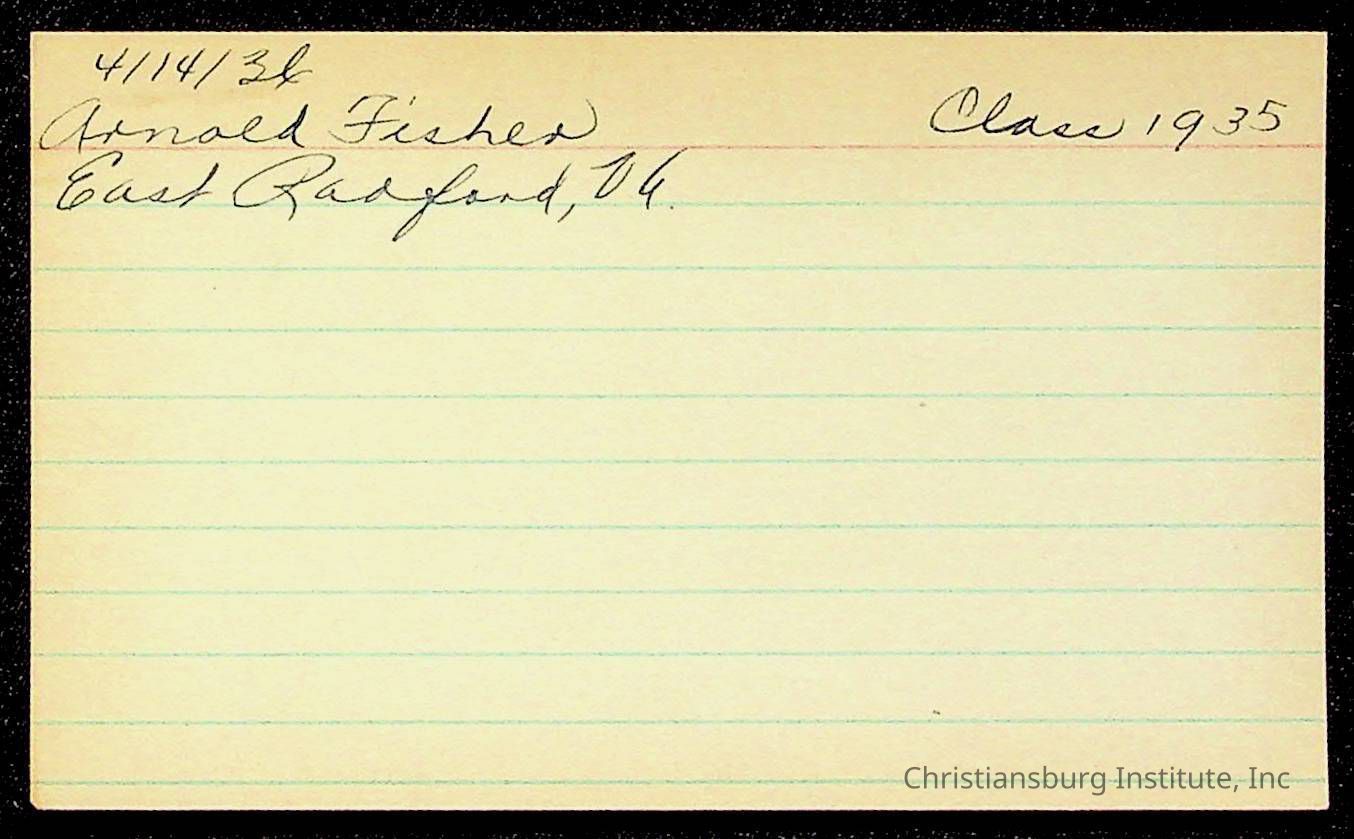 4/14/36
Arnold Fisher Class 1935
East Radford, Va.
Christiansburg Institute, Inc